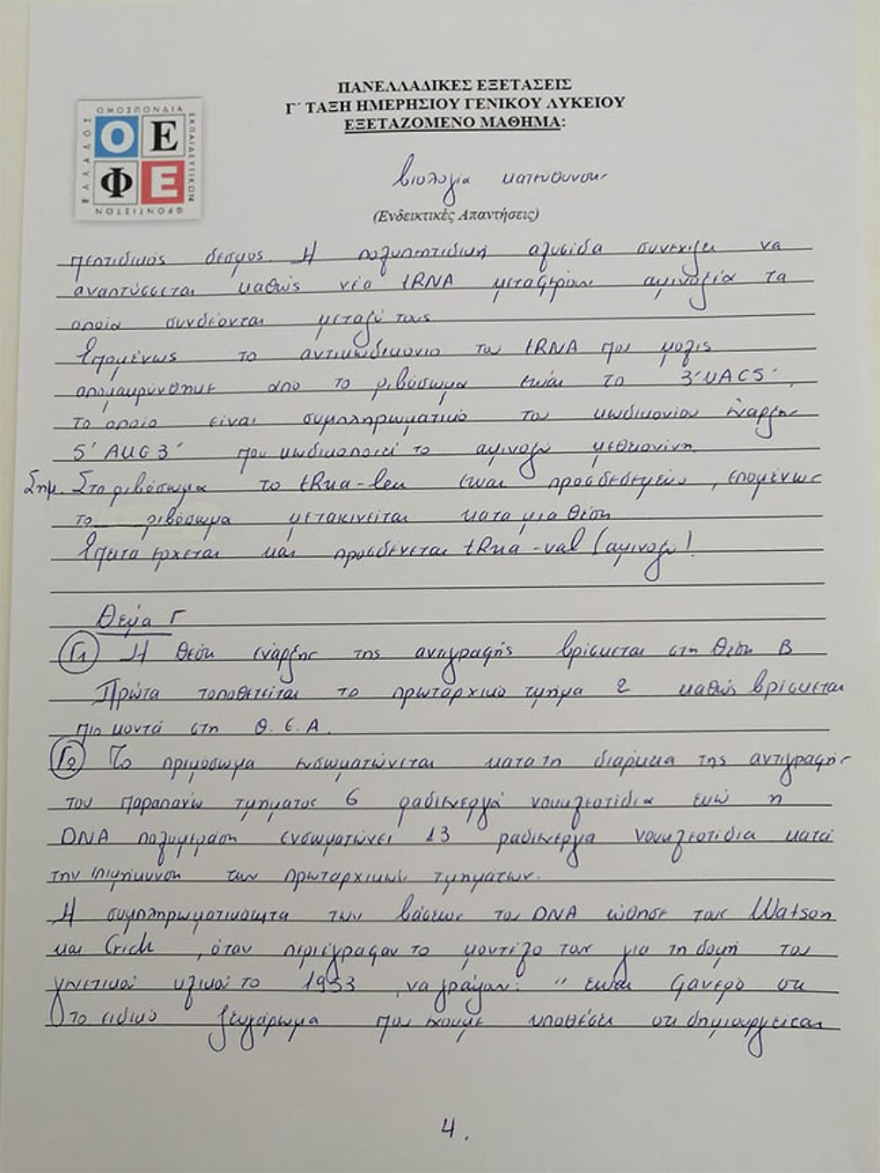 ΟΜΟΣΠΟΝΔΙΑ
ΕΚΠΑΙΔΕΥΤΙΚΩΝ
ΦΡΟΝΤΙΣΤΩΝ
ΕΛΛΑΔΟΣ
ΟΕ
ΦΕ
ΠΑΝΕΛΛΑΔΙΚΕΣ ΕΞΕΤΑΣΕΙΣ
Γ΄ ΤΑΞΗ ΗΜΕΡΗΣΙΟΥ ΓΕΝΙΚΟΥ ΛΥΚΕΙΟΥ
ΕΞΕΤΑΖΟΜΕΝΟ ΜΑΘΗΜΑ:
βιολογία κατεύθυνσης
(Ενδεικτικές Απαντήσεις)
πεπτιδικός δεσμος. Η πολυπεπτιδική αλυσίδα συνεχίζει να
αναπτύσσεται καθώς νέα tRNA μεταφέρουν αμινοξέα τα
οποία συνδέονται μεταξύ τους
Επομένως το αντικωδικόνιο του tRNA που μολις
απομακρύνθηκε απο το ριβόσωμα είναι το 3'UAC5',
το οποίο είναι συμπληρωματικό του κωδικονίου έναρξης
5'AUG3' που κωδικοποιεί το αμινοξύ μεθειονίνη.
Σημ. Στο ριβόσωμα το tRna-leu είναι προσδεδεμένο, επομένως
το ριβόσωμα μετακινείται κατα μια θέση
Έπειτα έρχεται και προσδένεται tRna-val (αμινοξύ!
Θεμα Γ
Γ1 Η θέση έναρξης της αντιγραφής βρίσκεται στη θέση Β
Πρώτα τοποθετείται το πρωταρχικό τμήμα 2 καθώς βρίσκεται
πιο κοντά στη Θ.Ε.Α.
Γ2 Το πριμόσωμα ενσωματώνεται κατα τη διάρκεια της αντιγραφής
του παραπάνω τμηματος 6 ραδιενεργά νουκλεοτίδια ενώ η
DNA πολυμεράση ενσωματώνει 13 ραδιενεργα νουκλεοτίδια κατά
την επιμήκυνση των πρωταρχικών τμημάτων.
Η συμπληρωματικότητα των βάσεων του DNA ώθησε τους Watson
και Crick, όταν περιέγραφαν το μοντέλο τους για τη δομή του
γενετικού υλικού το 1953, να γράψουν: " είναι φανερό οτι
το ειδικό ζευγάρωμα που έχουμε υποθέσει οτι δημιουργείται
4.